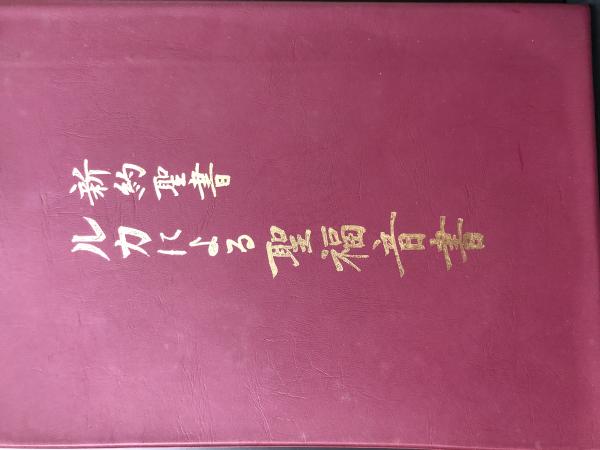 新約聖書
ルカによる聖福音書